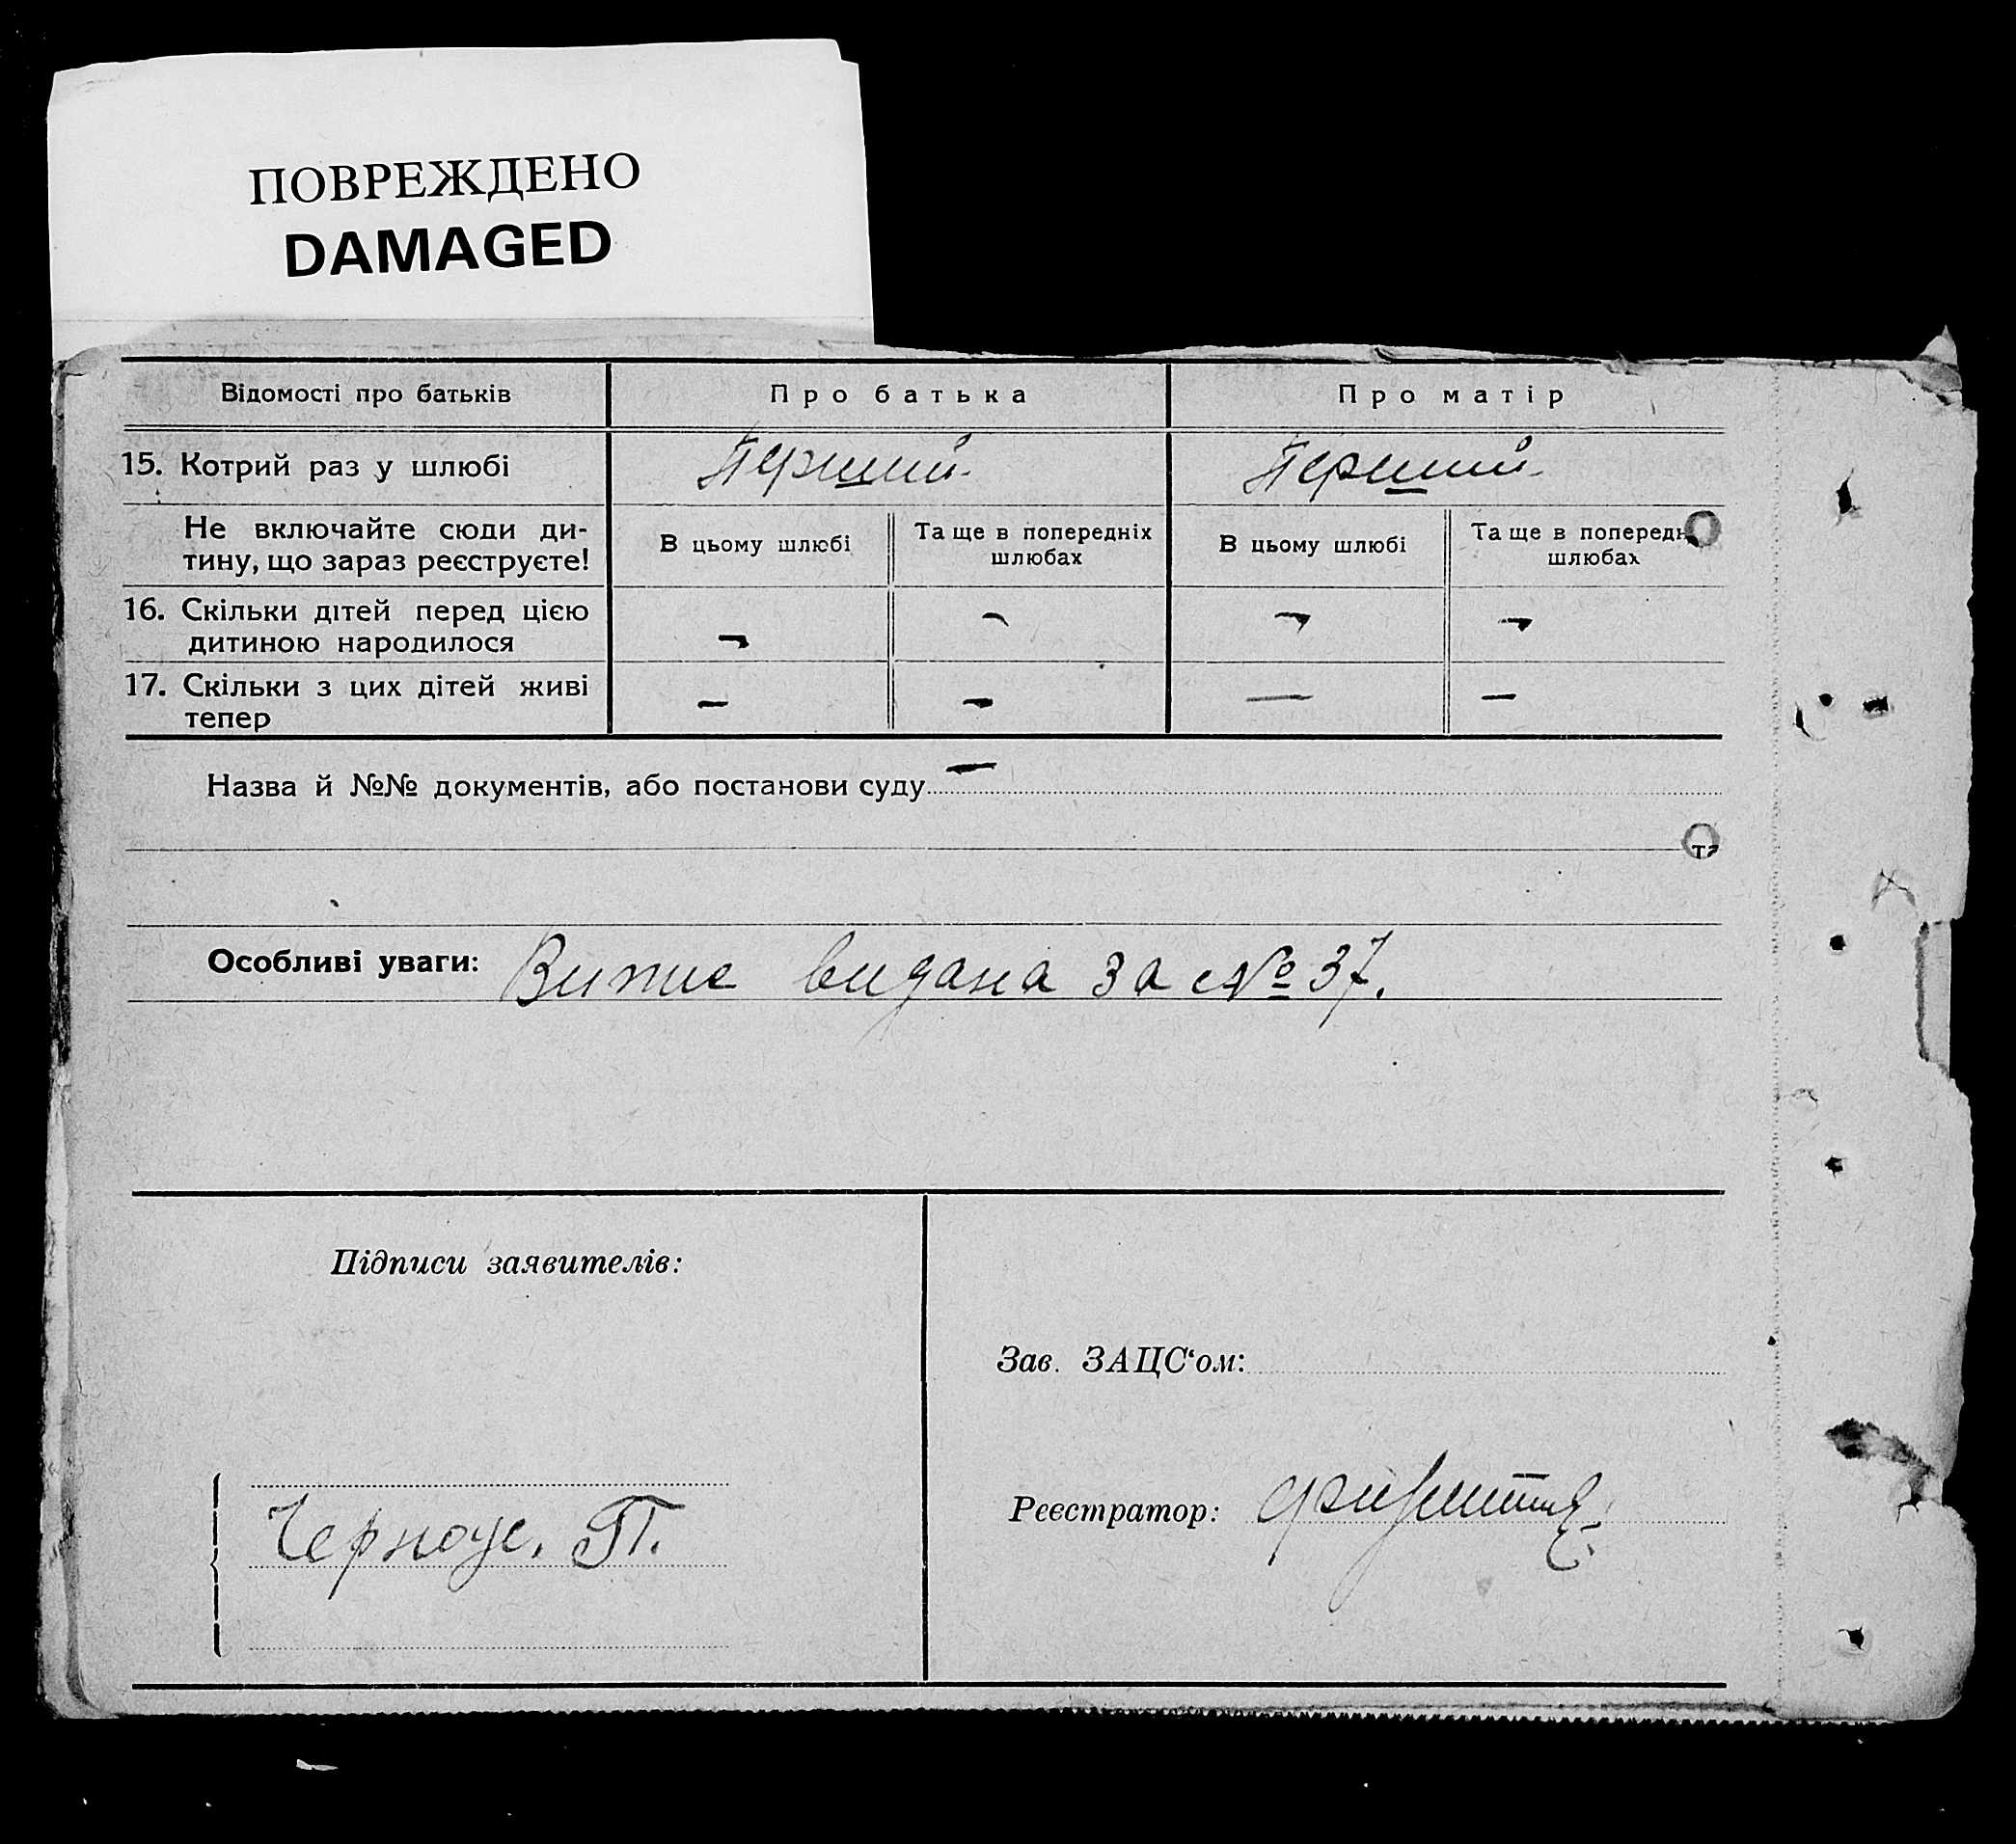 ПОВРЕЖДЕНО
DAMAGED
Відомості про батьків Про батька Про матір
15. Котрий раз у шлюбі Перший. Перший.
Не включайте сюди ди-
тину, що зараз реєструєте!
В цьому шлюбі
Та ще в попередніх
шлюбах
В цьому шлюбі
Та ще в попередн
шлюбах
16. Скільки дітей перед цією
дитиною народилося — — — —
17. Скільки з цих дітей живі
тепер — — — —
Назва й №№ документів, або постанови суду —
Особливі уваги: Випис видана за № 37.
Підписи заявителів:
Зав. ЗАЦС‘ом:
Реєстратор:
Черноус. П.